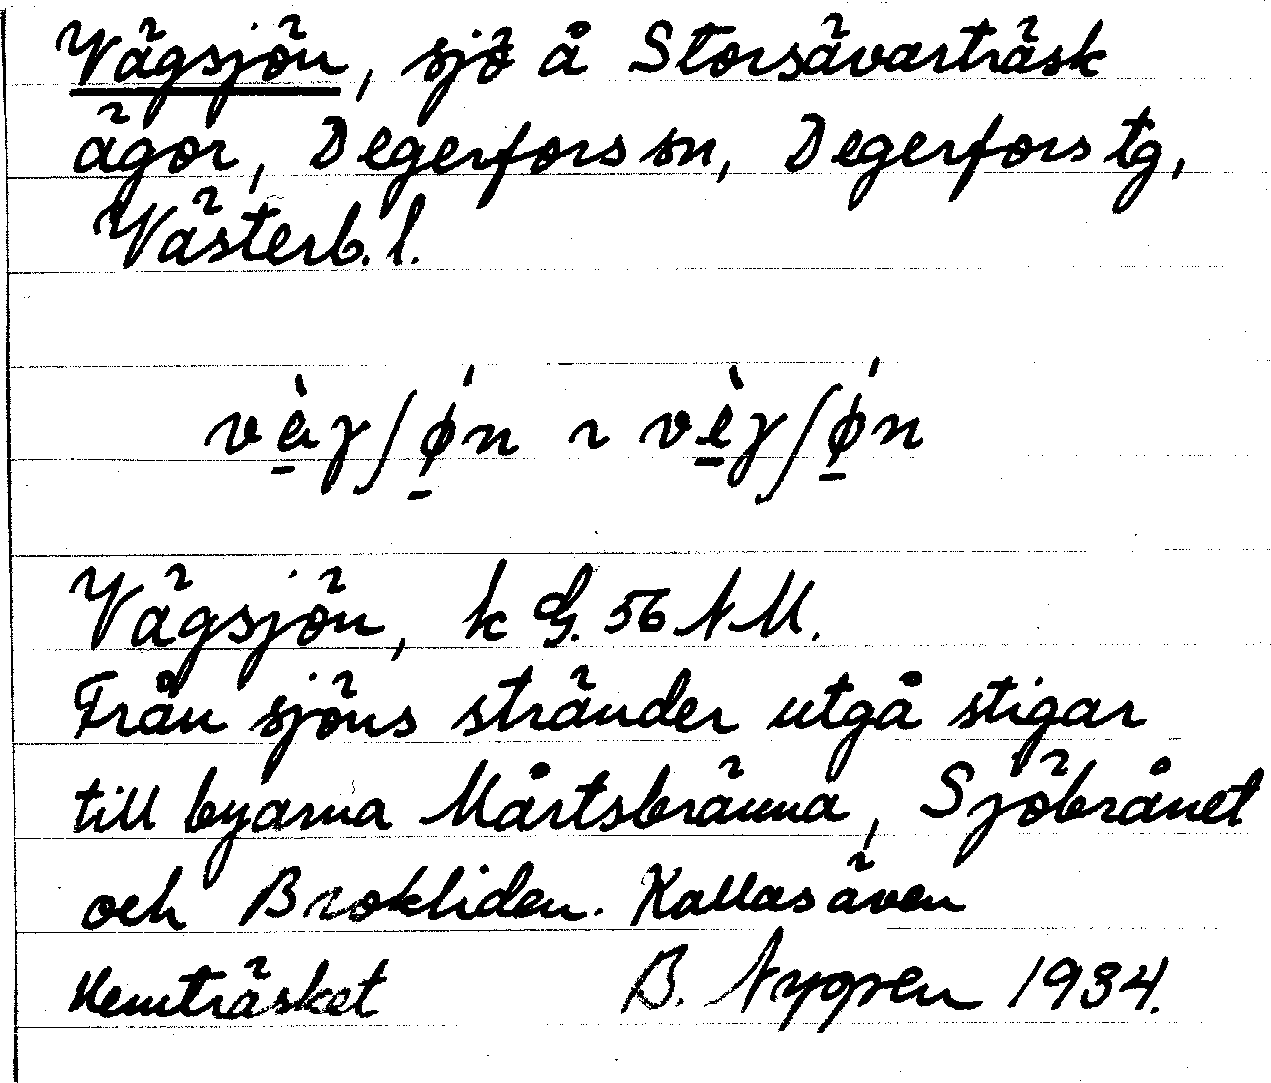 Vägsjön, sjö å Storsävarträsk
ägor, Degerfors sn, Degerfors tg,
Västerb. l.
vą̀γʃǿ̱n ~ vè̱γʃǿ̱n
Vägsjön, k G. 56 N M.
Från sjöns stränder utgå stigar
till byarna Mårtsbränna, Sjöbrånet
och Brokliden. Kallas även
Hemträsket B. Nygren 1934.